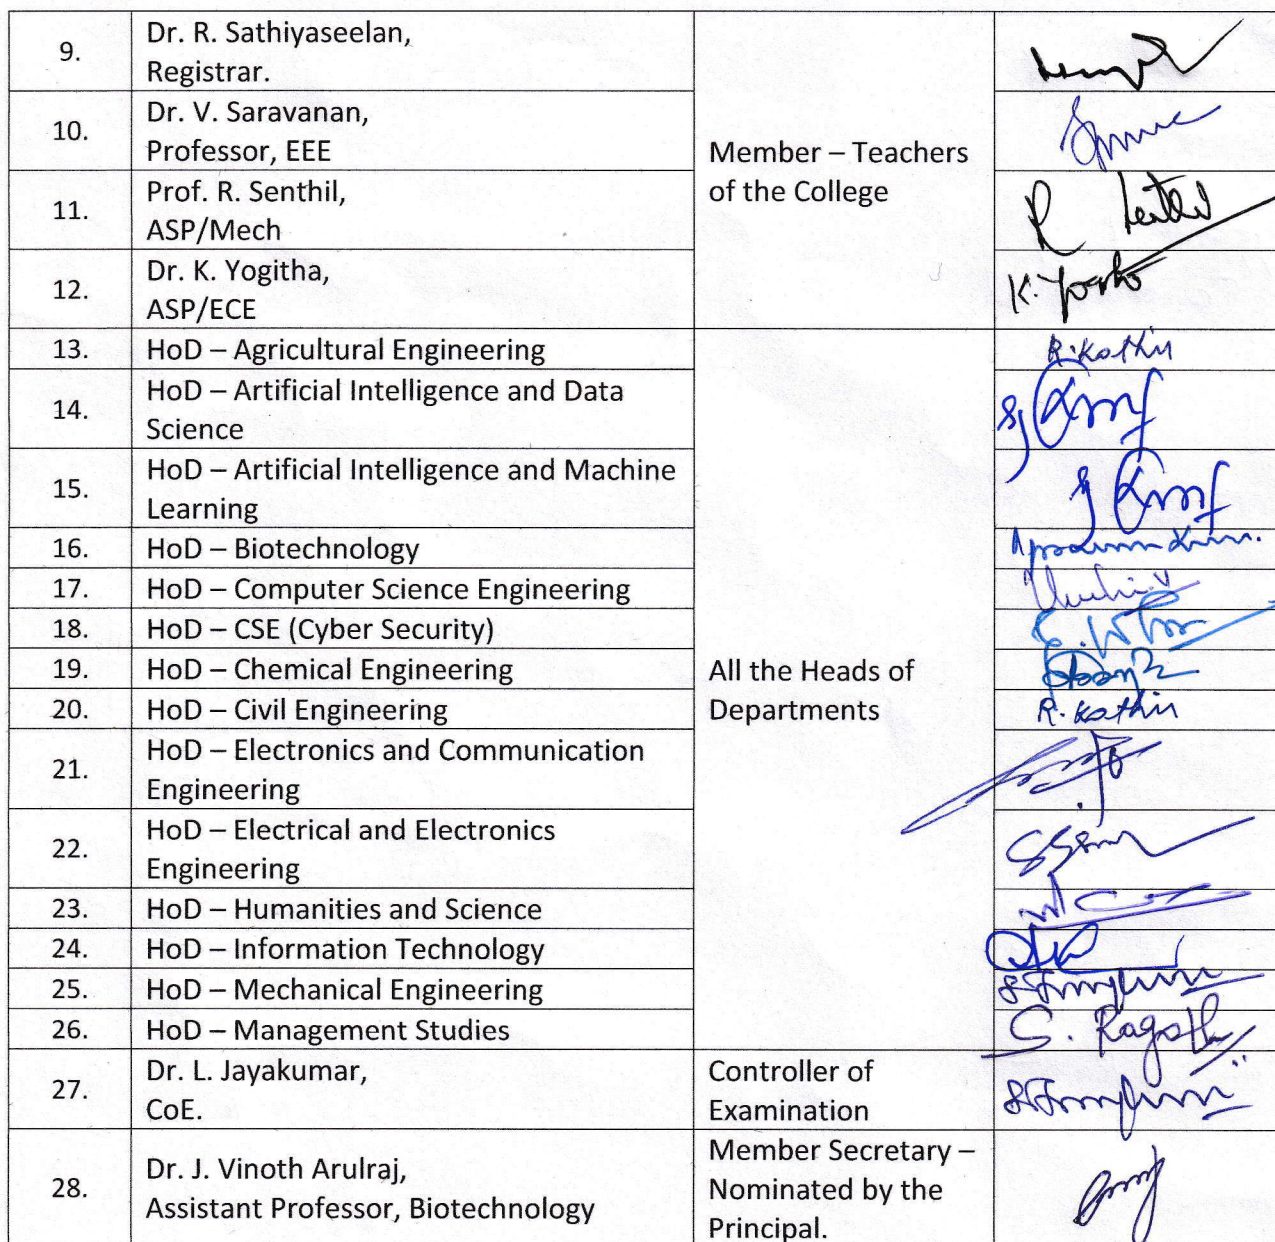 9.
Dr. R. Sathiyaseelan,
Registrar.
10.
Dr. V. Saravanan,
Professor, EEE
Member – Teachers
of the College
11.
Prof. R. Senthil,
ASP/Mech
12.
Dr. K. Yogitha,
ASP/ECE
13.
HoD – Agricultural Engineering
R. Kathir
14.
HoD – Artificial Intelligence and Data
Science
15.
HoD – Artificial Intelligence and Machine
Learning
16.
HoD – Biotechnology
17.
HoD – Computer Science Engineering
18.
HoD – CSE (Cyber Security)
19.
HoD – Chemical Engineering
All the Heads of
Departments
20.
HoD – Civil Engineering
R. Kathir
21.
HoD – Electronics and Communication
Engineering
22.
HoD – Electrical and Electronics
Engineering
23.
HoD – Humanities and Science
24.
HoD – Information Technology
25.
HoD – Mechanical Engineering
26.
HoD – Management Studies
27.
Dr. L. Jayakumar,
CoE.
Controller of
Examination
28.
Dr. J. Vinoth Arulraj,
Assistant Professor, Biotechnology
Member Secretary –
Nominated by the
Principal.